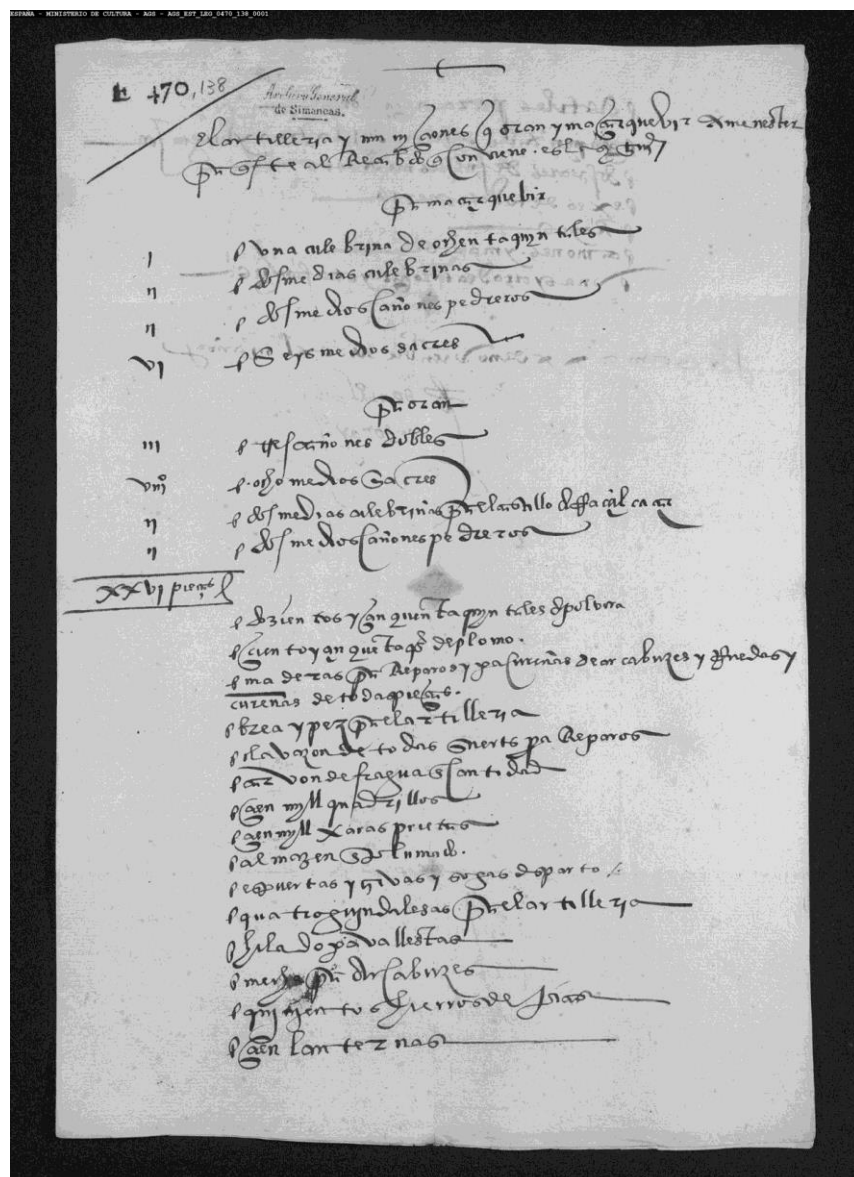 ESPAÑA - MINISTERIO DE CULTURA - AGS - AGS_EST_LEG_0470_138_0001
E 470,138
Archivo General
de Simancas.
El artilleria y municiones q oran y maçarquebir an menester
pa
pa maçarquebir
I una culebrina de ochenta quintales
II dos medias culebrinas
II dos medios cañones pedreros
VI seys medios sacres
pa oran
III tres cañones dobles
VIIIº ocho medios sacres
II dos medias culebrinas pa el castillo de Raçalcaçar
II dos medios cañones pedreros
XXVI pieças
dozientos y cinquenta quintales de polvora
ciento y cinquenta qs de plomo.
maderas pa Reparos y pa cureñas de arcabuzes y Ruedas y
cureñas de toda pieças.
brea y pez pa el artilleria
clavazon de todas suertes pa Reparos
carvon de fragua cantidad
cien myll quadrillos
cien myll xaras prietas
almazen
espuertas y sogas desparto
quatro guindalesas pa el artilleria
hilado pa vallestas
mecha pa arcabuzes
quinientos hierros de
cien lanternas